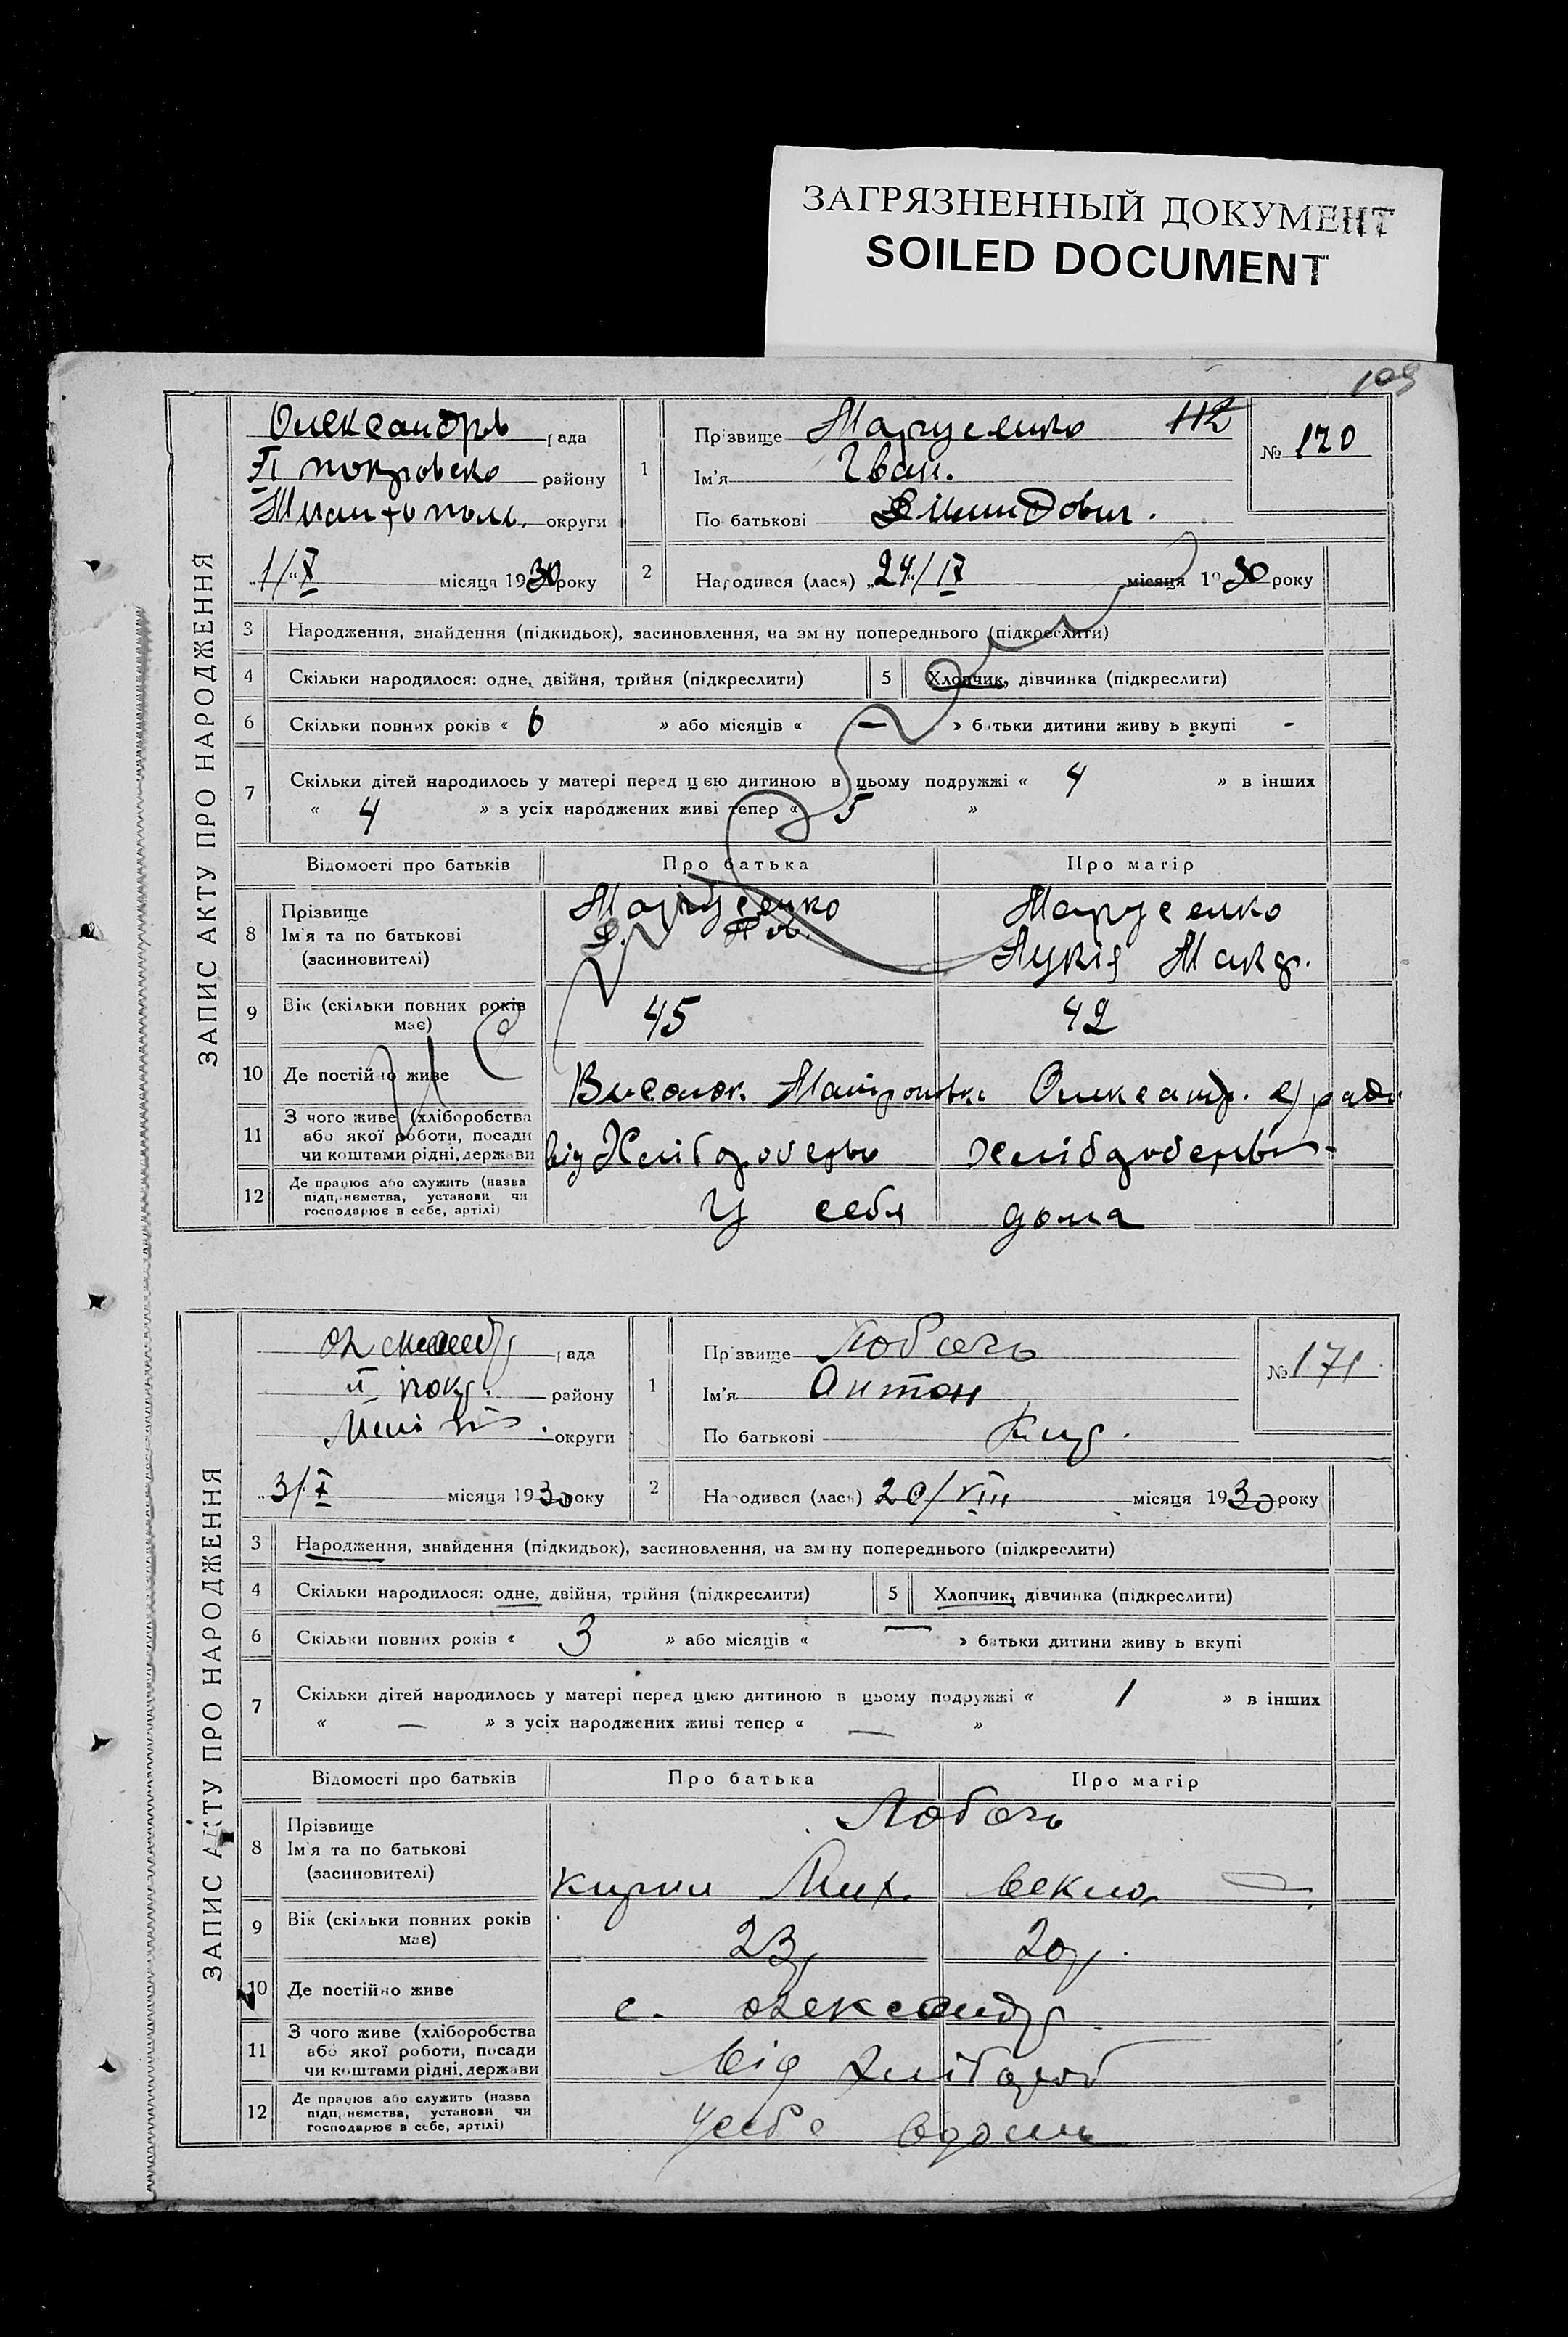 ЗАГРЯЗНЕННЫЙ ДОКУМЕНТ
SOILED DOCUMENT
109
ЗАПИС АКТУ ПРО НАРОДЖЕННЯ
Олександрів рада
П покровсько району
округи
1/X місяця 1930 року
1
Прізвище Марусенко 112
Ім'я Іван.
По батькові
№ 170
2
Народився (лася) „24/IX місяця 1930 року
3 Народження, знайдення (підкидьок), засиновлення, на зміну попереднього (підкреслити)
4 Скільки народилося: одне, двійня, трійня (підкреслити)
5 Хлопчик, дівчинка (підкреслити)
6 Скільки повних років « 6 » або місяців « — » батьки дитини живуть вкупі -
7 Скільки дітей народилось у матері перед цією дитиною в цьому подружжі « 4 » в інших
« 4 » з усіх народжених живі тепер « 5 »
Відомості про батьків Про батька Про матір
8 Прізвище Марусенко Марусенко
Ім'я та по батькові
(засиновителі) Лукія Макар.
9 Вік (скільки повних років має) 45 42
10 Де постійно живе Олександр.
11 З чого живе (хліборобства або якої роботи, посади чи коштами рідні, держави від Хліборобства хліборобства
12 Де працює або служить (назва підприємства, установи чи господарює в себе, артілі) У себя дома
ЗАПИС АКТУ ПРО НАРОДЖЕННЯ
Олександр рада
П покр. району
округи
3/X місяця 1930 року
1
Прізвище Лобачь
Ім'я Антон
По батькові Кир.
№ 171
2
Народився (лася) 20/VIII місяця 1930 року
3 Народження, знайдення (підкидьок), засиновлення, на зміну попереднього (підкреслити)
4 Скільки народилося: одне, двійня, трійня (підкреслити)
5 Хлопчик, дівчинка (підкреслити)
6 Скільки повних років « 3 » або місяців « — » батьки дитини живуть вкупі
7 Скільки дітей народилось у матері перед цією дитиною в цьому подружжі « 1 » в інших
« — » з усіх народжених живі тепер « — »
Відомості про батьків Про батька Про матір
8 Прізвище Лобачь
Ім'я та по батькові
(засиновителі) Кирил Мих. Векла
9 Вік (скільки повних років має) 23 20р.
10 Де постійно живе с. олександр.
11 З чого живе (хліборобства або якої роботи, посади чи коштами рідні, держави від хлібороб
12 Де працює або служить (назва підприємства, установи чи господарює в себе, артілі) у себе вдома